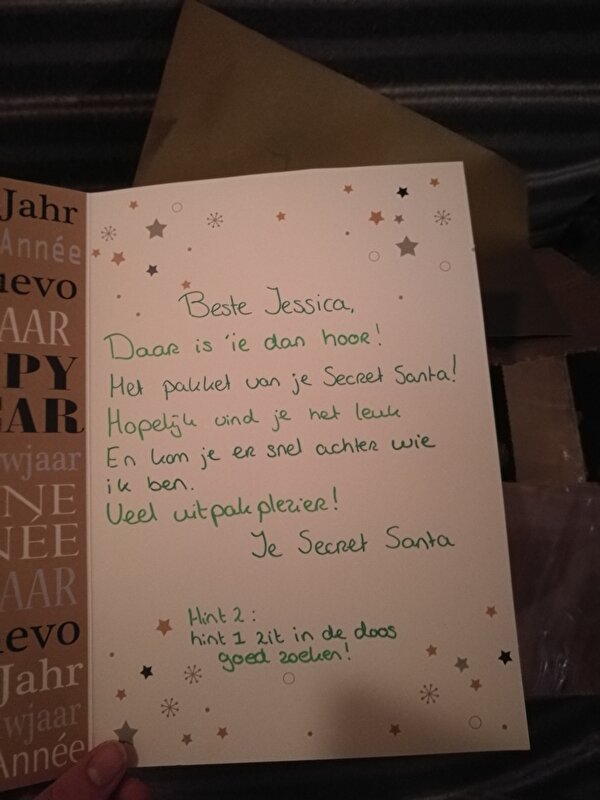 Jahr
Année
uevo
JAAR
PPY
EAR
wjaar
NNE
NNÉE
JAAR
uevo
Jahr
wjaar
Année
Beste Jessica,
Daar is 'ie dan hoor!
Het pakket van je Secret Santa!
Hopelijk vind je het leuk
En kom je er snel achter wie
ik ben.
Veel uitpakplezier!
Je Secret Santa
Hint 2:
hint 1 zit in de doos
goed zoeken!